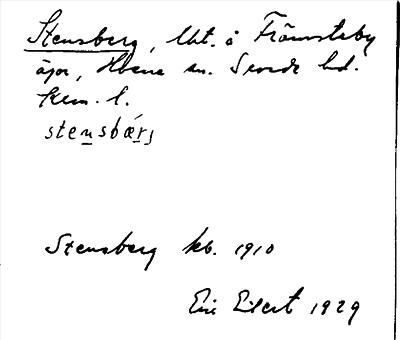 Stensberg, lht. å Främsteby
ägor, Huena sn. Sevede hd.
Kalm. l.
stensbærj
Stensberg kb. 1910
Eric Eilert 1929